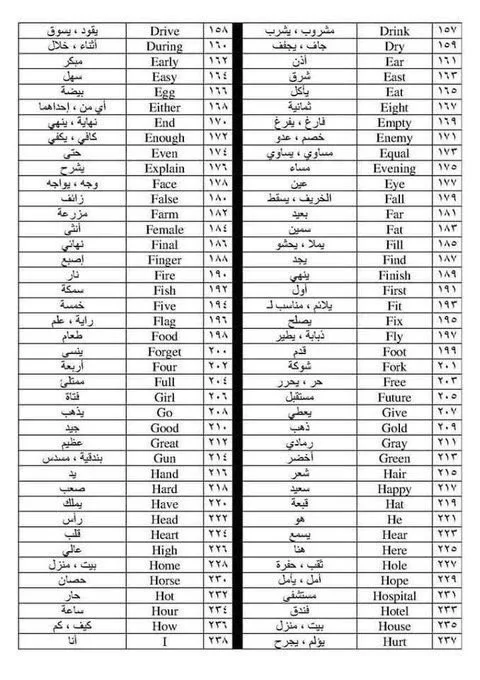 ١٥٧ Drink مشروب ، يشرب ١٥٨ Drive يقود ، يسوق
١٥٩ Dry جاف ، يجفف ١٦٠ During أثناء ، خلال
١٦١ Ear أذن ١٦٢ Early مبكر
١٦٣ East شرق ١٦٤ Easy سهل
١٦٥ Eat يأكل ١٦٦ Egg بيضة
١٦٧ Eight ثمانية ١٦٨ Either أي من ، إحداهما
١٦٩ Empty فارغ ، يفرغ ١٧٠ End نهاية ، ينهي
١٧١ Enemy خصم ، عدو ١٧٢ Enough كافي ، يكفي
١٧٣ Equal مساوي ، يساوي ١٧٤ Even حتى
١٧٥ Evening مساء ١٧٦ Explain يشرح
١٧٧ Eye عين ١٧٨ Face وجه ، يواجه
١٧٩ Fall الخريف ، يسقط ١٨٠ False زائف
١٨١ Far بعيد ١٨٢ Farm مزرعة
١٨٣ Fat سمين ١٨٤ Female أنثى
١٨٥ Fill يملا ، يحشو ١٨٦ Final نهائي
١٨٧ Find يجد ١٨٨ Finger إصبع
١٨٩ Finish ينهي ١٩٠ Fire نار
١٩١ First أول ١٩٢ Fish سمكة
١٩٣ Fit يلائم ، مناسب لـ ١٩٤ Five خمسة
١٩٥ Fix يصلح ١٩٦ Flag راية ، علم
١٩٧ Fly ذبابة ، يطير ١٩٨ Food طعام
١٩٩ Foot قدم ٢٠٠ Forget ينسى
٢٠١ Fork شوكة ٢٠٢ Four أربعة
٢٠٣ Free حر ، يحرر ٢٠٤ Full ممتلئ
٢٠٥ Future مستقبل ٢٠٦ Girl فتاة
٢٠٧ Give يعطي ٢٠٨ Go يذهب
٢٠٩ Gold ذهب ٢١٠ Good جيد
٢١١ Gray رمادي ٢١٢ Great عظيم
٢١٣ Green أخضر ٢١٤ Gun بندقية ، مسدس
٢١٥ Hair شعر ٢١٦ Hand يد
٢١٧ Happy سعيد ٢١٨ Hard صعب
٢١٩ Hat قبعة ٢٢٠ Have يملك
٢٢١ He هو ٢٢٢ Head رأس
٢٢٣ Hear يسمع ٢٢٤ Heart قلب
٢٢٥ Here هنا ٢٢٦ High عالي
٢٢٧ Hole ثقب ، حفرة ٢٢٨ Home بيت ، منزل
٢٢٩ Hope أمل ، يأمل ٢٣٠ Horse حصان
٢٣١ Hospital مستشفى ٢٣٢ Hot حار
٢٣٣ Hotel فندق ٢٣٤ Hour ساعة
٢٣٥ House بيت ، منزل ٢٣٦ How كيف ، كم
٢٣٧ Hurt يؤلم ، يجرح ٢٣٨ I أنا